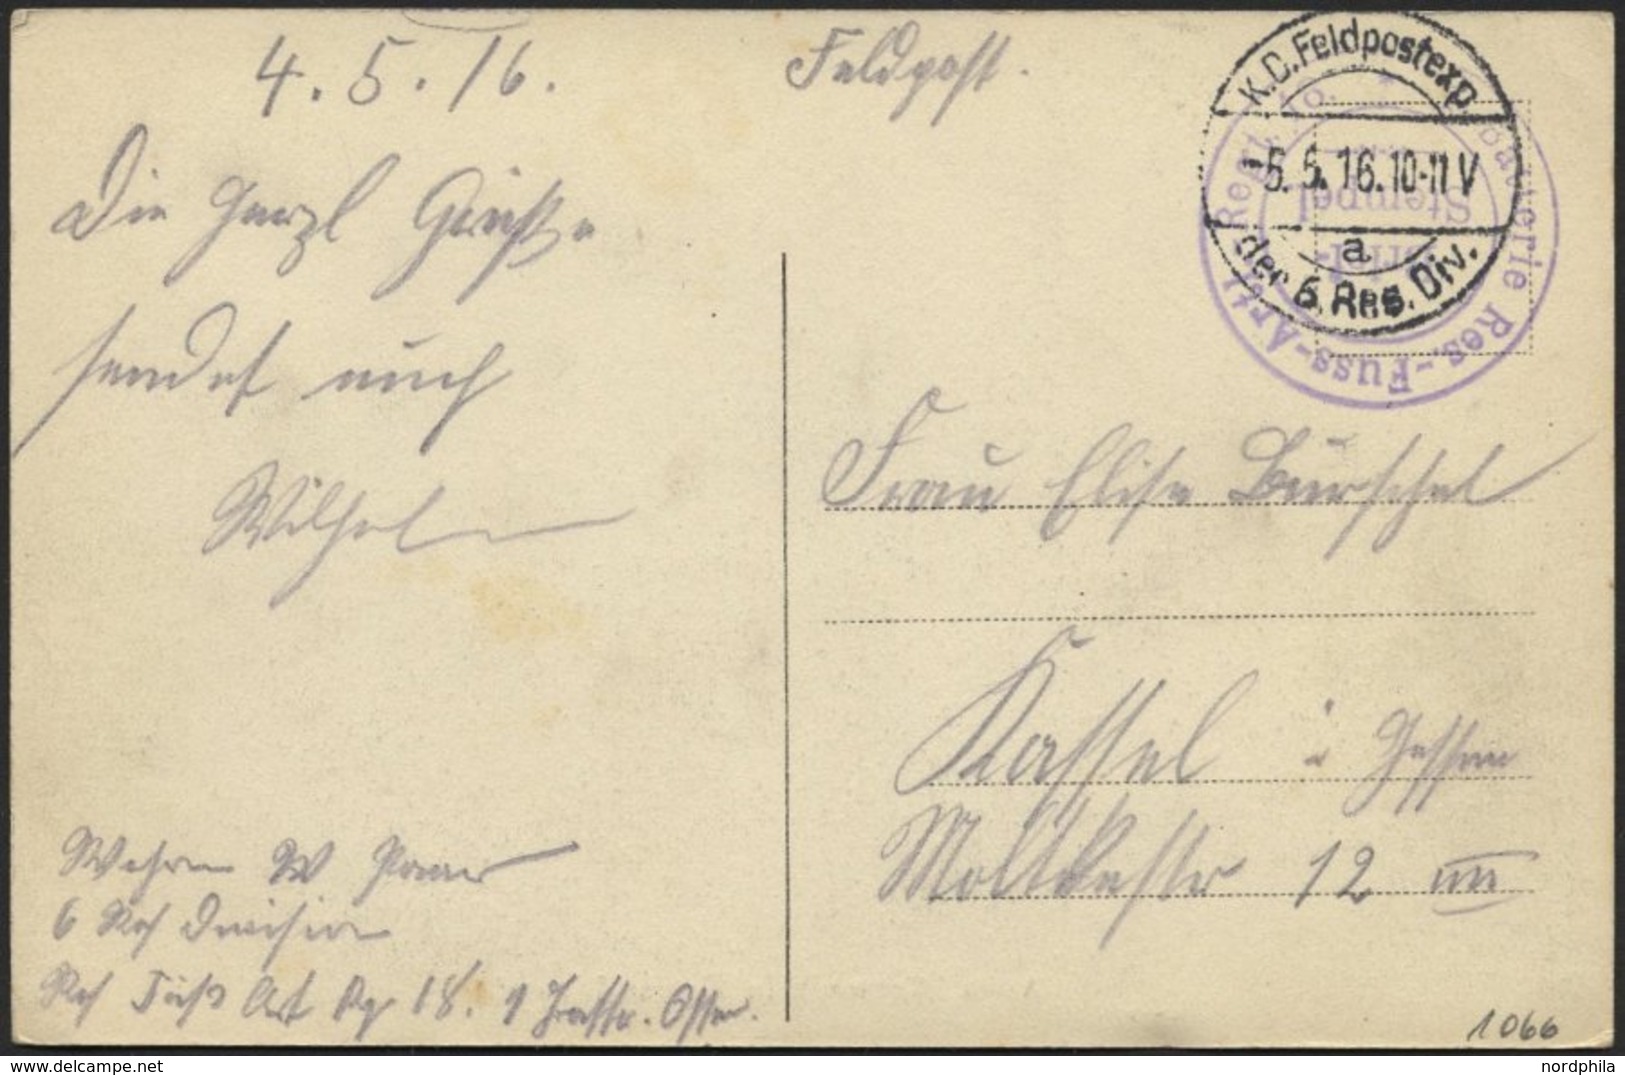 4.5.16.
Feldpost.
Die Herzl Grüße
sendet euch
Wilhelm
K.D.Feldpostexp.
-5.5.16.10-11V
a
der 6.Res.Div.
Batterie Res.-Fuss-Artl. Regt. No.
Brief-
Stempel
Frau Elise Burschel
Kassel i Hessen
Moltkestr 12 III
Wehrm W
6 Res Division
Res Fuß Art Rg 18.
1066
nordphila